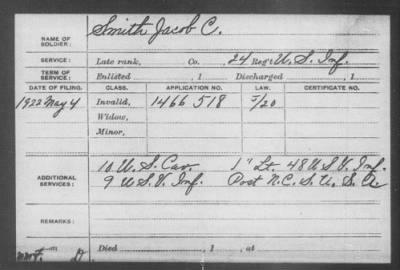 NAME OF SOLDIER: Smith Jacob C.
SERVICE: Late rank, Co. 24 Reg't U.S. Inf.
TERM OF SERVICE: Enlisted , 1 Discharged , 1
DATE OF FILING. CLASS. APPLICATION NO. LAW. CERTIFICATE NO.
1922 May 4 Invalid, 1466 518 5/20
Widow,
Minor,
ADDITIONAL SERVICES: 10 U.S. Cav. 1" Lt. 48 U.S.V. Inf.
9 U.S.V. Inf. Post N.C.S. U.S.A
REMARKS:
Died , 1 , at